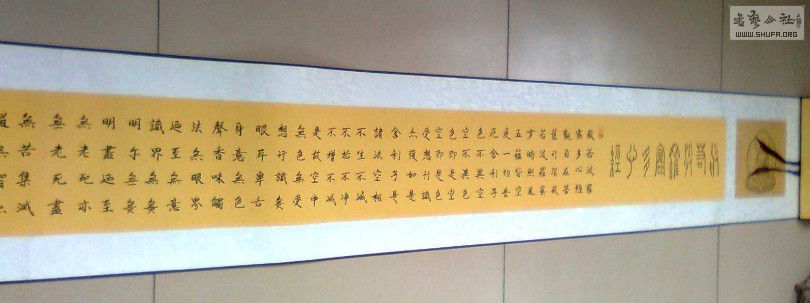 般若波羅蜜多心經
般若波羅
蜜多心經
觀自在菩
薩行深般
若波羅蜜
多時照見
五蘊皆空
度一切苦
厄舍利子
色不異空
空不異色
色即是空
空即是色
受想行識
亦復如是
舍利子是
諸法空相
不生不滅
不垢不淨
不增不減
是故空中
無色無受
想行識無
眼耳鼻舌
身意無色
聲香味觸
法無眼界
迺至無意
識界無無
明亦無無
明盡迺至
無老死亦
無老死盡
無苦集滅
道無智
WWW.SHUFA.ORG